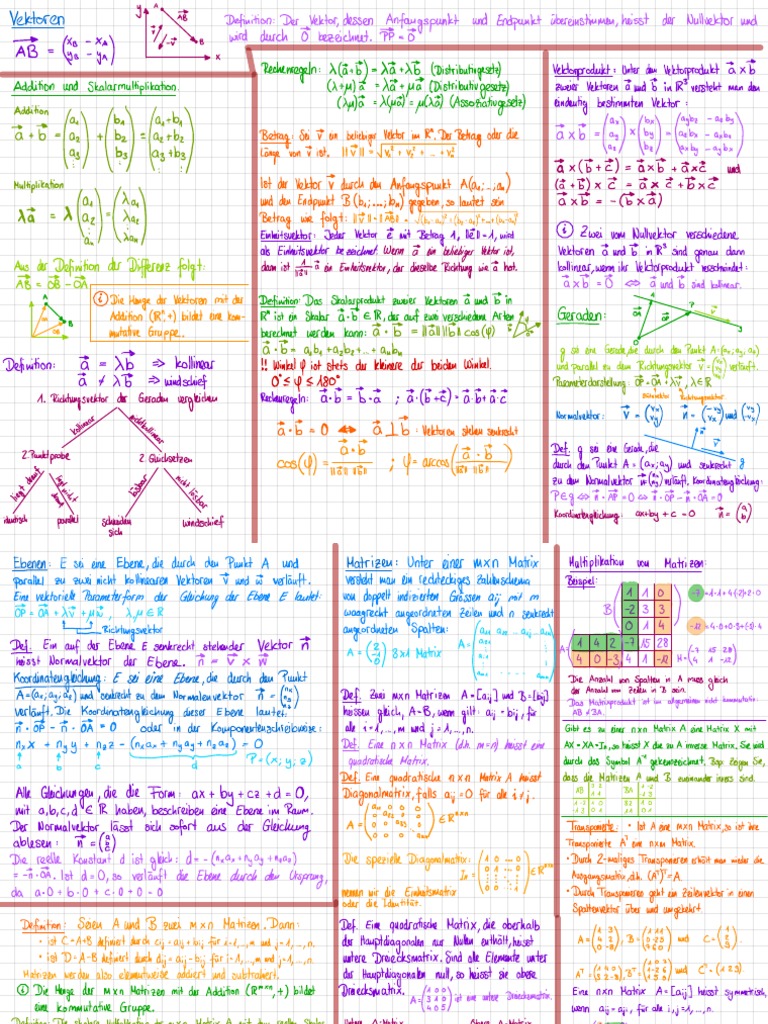 Vektoren
AB = (xB - xA
yB - yA)
y
A
B
x
Definition: Der Vektor, dessen Anfangspunkt und Endpunkt übereinstimmen, heisst der Nullvektor und
wird durch O bezeichnet. PP = O
Addition und Skalarmultiplikation.
Addition
a + b = (a1 a2 a3 ⋮) + (b1 b2 b3 ⋮) = (a1+b1 a2+b2 a3+b3 ⋮)
Multiplikation
λa = λ(a1 a2 ⋮ an) = (λa1 λa2 ⋮ λan)
Aus der Definition der Differenz folgt:
AB = OB - OA
i Die Menge der Vektoren mit der
Addition (Rⁿ,+) bildet eine kom-
mutative Gruppe.
Definition: a = λb ⇒ kollinear
a ≠ λb ⇒ windschief
1. Richtungsvektor der Geraden vergleichen
kollinear
nicht kollinear
2. Punktprobe
2. Gleichsetzen
liegt darauf
liegt nicht darauf
lösbar
nicht lösbar
identisch
parallel
schneiden
sich
windschief
Rechenregeln: λ(a+b) = λa+λb (Distributivgesetz)
(λ+μ)a = λa+μa (Distributivgesetz)
(λμ)a = λ(μa) = μ(λa) (Assoziativgesetz)
Betrag: Sei v ein beliebiger Vektor im Rⁿ. Der Betrag oder die
Länge von v ist. ||v|| = √v1² + v2² + ... + vn²
Ist der Vektor v durch den Anfangspunkt A(a1;...;an)
und den Endpunkt B(b1;...;bn) gegeben, so lautet sein
Betrag wie folgt: ||v|| = ||AB|| = √(b1-a1)²+(b2-a2)²+...+(bn-an)²
Einheitsvektor: Jeder Vektor e mit Betrag 1, ||e|| = 1, wird
als Einheitsvektor bezeichnet. Wenn a ein beliebiger Vektor ist,
dann ist 1/||a|| · a ein Einheitsvektor, der dieselbe Richtung wie a hat.
Definition: Das Skalarprodukt zweier Vektoren a und b in
Rⁿ ist ein Skalar a·b ∈ R, der auf zwei verschiedene Arten
berechnet werden kann: a·b = ||a|| ||b|| cos(φ)
a·b = a1b1 + a2b2 + ... + anbn
!! Winkel φ ist stets der kleinere der beiden Winkel.
0° ≤ φ ≤ 180°
Rechenregeln: a·b = b·a ; a·(b+c) = a·b + a·c
a·b = 0 ⇔ a⊥b : Vektoren stehen senkrecht
cos(φ) = a·b / ||a|| ||b|| ; φ = arccos(a·b / ||a|| ||b||)
Vektorprodukt: Unter dem Vektorprodukt a×b
zweier Vektoren a und b in R³ versteht man den
eindeutig bestimmten Vektor:
a×b = (ax ay az) × (bx by bz) = (aybz - azby azbx - axbz axby - aybx)
a×(b+c) = a×b + a×c und
(a+b)×c = a×c + b×c
a×b = -(b×a)
i Zwei vom Nullvektor verschiedene
Vektoren a und b in R³ sind genau dann
kollinear, wenn ihr Vektorprodukt verschwindet:
a×b = O ⇔ a und b sind kollinear.
Geraden:
g sei eine Gerade, die durch den Punkt A=(ax; ay; az)
und parallel zu dem Richtungsvektor v = (vx vy vz) verläuft.
Parameterdarstellung: OP = OA + λv, λ∈R
Stützvektor Richtungsvektor
Normalvektor: v = (vx vy) n = (-vy vx) und (vy -vx)
g
Def. g sei eine Gerade, die
durch den Punkt A = (ax; ay) und senkrecht
zu dem Normalvektor n = (nx ny) verläuft. Koordinatengleichung:
P∈g ⇔ n·AP = 0 ⇔ n·OP - n·OA = 0
Koordinatengleichung: ax+by+c = 0 n = (a b)
Ebenen: E sei eine Ebene, die durch den Punkt A und
parallel zu zwei nicht kollinearen Vektoren v und w verläuft.
Eine vektorielle Parameterform der Gleichung der Ebene E lautet:
OP = OA + λv + μw , λ,μ ∈ R
Richtungsvektor
Def. Ein auf der Ebene E senkrecht stehender Vektor n
heisst Normalvektor der Ebene. n = v × w
Koordinatengleichung: E sei eine Ebene, die durch den Punkt
A=(ax; ay; az) und senkrecht zu dem Normalenvektor n = (nx ny nz)
verläuft. Die Koordinatengleichung dieser Ebene lautet:
n·OP - n·OA = 0 oder in der Komponentenschreibweise:
nxx + nyy + nzz - (nxax + nyay + nzaz) = 0
a b c d P=(x; y; z)
Alle Gleichungen, die die Form: ax + by + cz + d = 0,
mit a,b,c,d ∈ R haben, beschreiben eine Ebene im Raum.
Der Normalvektor lässt sich sofort aus der Gleichung
ablesen: n = (a b c)
Die reelle Konstant d ist gleich: d = -(nxax + nyay + nzaz)
= -n·OA. Ist d=0, so verläuft die Ebene durch den Ursprung,
da a·0 + b·0 + c·0 + 0 = 0
Matrizen: Unter einer m×n Matrix
versteht man ein rechteckiges Zahlenschema
von doppelt indizierten Grössen aij mit m
waagrecht angeordneten Zeilen und n senkrecht
angeordneten Spalten:
Def. Zwei m×n Matrizen A=[aij] und B=[bij]
heissen gleich, A=B, wenn gilt: aij = bij, für
alle i=1,...,m und j=1,...,n.
Def. Eine n×n Matrix (d.h. m=n) heisst eine
quadratische Matrix.
Def. Eine quadratische n×n Matrix A heisst
Diagonalmatrix, falls aij = 0 für alle i≠j.
Die spezielle Diagonalmatrix:
nennen wir die Einheitsmatrix
oder die Identität.
Multiplikation von Matrizen:
Beispiel:
B 1 1 0
-2 3 3
0 1 4
A = 1 4 2 -7 15 28
4 0 -3 4 1 -12
Die Anzahl von Spalten in A muss gleich
der Anzahl von Zeilen in B sein.
Das Matrixprodukt ist im allgemeinen nicht kommutativ
AB ≠ BA.
Gibt es zu einer n×n Matrix A eine Matrix X mit
AX = XA = In, so heisst X die zu A inverse Matrix. Sie wird
durch das Symbol A⁻¹ gekennzeichnet. Bsp: Zeigen Sie,
dass die Matrizen A und B zueinander invers sind.
Transponierte: · Ist A eine m×n Matrix, so ist ihre
Transponierte Aᵀ eine n×m Matrix.
· Durch 2-maliges Transponieren erhält man wieder die
Ausgangsmatrix, d.h. (Aᵀ)ᵀ = A.
· Durch Transponieren geht ein Zeilenvektor in einen
Spaltenvektor über und umgekehrt.
Eine n×n Matrix A=[aij] heisst symmetrisch,
wenn aij = aji, für alle i,j = 1,...,n
Definition: Seien A und B zwei m×n Matrizen. Dann:
· ist C=A+B definiert durch cij = aij + bij für i=1,...,m und j=1,...,n.
· ist D=A-B definiert durch dij = aij - bij für i=1,...,m und j=1,...,n.
Matrizen werden also elementweise addiert und subtrahiert.
i Die Menge der m×n Matrizen mit der Addition (Rᵐˣⁿ,+) bildet
eine kommutative Gruppe.
Def. Eine quadratische Matrix, die oberhalb
der Hauptdiagonalen nur Nullen enthält, heisst
untere Dreiecksmatrix. Sind alle Elemente unter
der Hauptdiagonalen null, so heisst sie obere
Dreiecksmatrix.
A = (1 0 0 3 1 0 4 0 5) ist eine untere Dreiecksmatrix